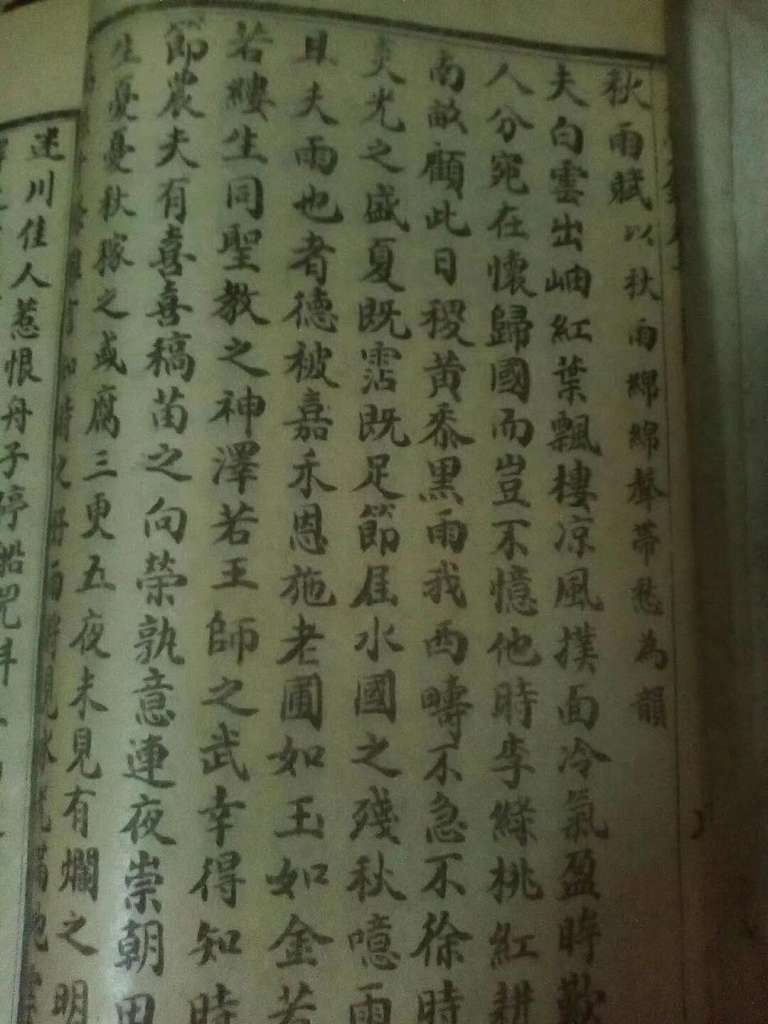 秋雨賦以秋雨綿綿聲帶愁為韻
夫白雲出岫紅葉飄樓凉風撲面冷氣盈眸歎
人分宛在懷歸國而豈不憶他時李綠桃紅耕
南畝顧此日稷黃黍黑雨我西疇不急不徐時
炎光之盛夏既霑既足節届水國之殘秋噫雨
且夫雨也者德被嘉禾恩施老圃如玉如金若
若縷生同聖教之神澤若王師之武幸得知時
節農夫有喜喜稿苗之向榮孰意連夜崇朝田
生憂憂秋稼之或腐三更五夜未見有爛之明
迷川佳人惹恨舟子停船